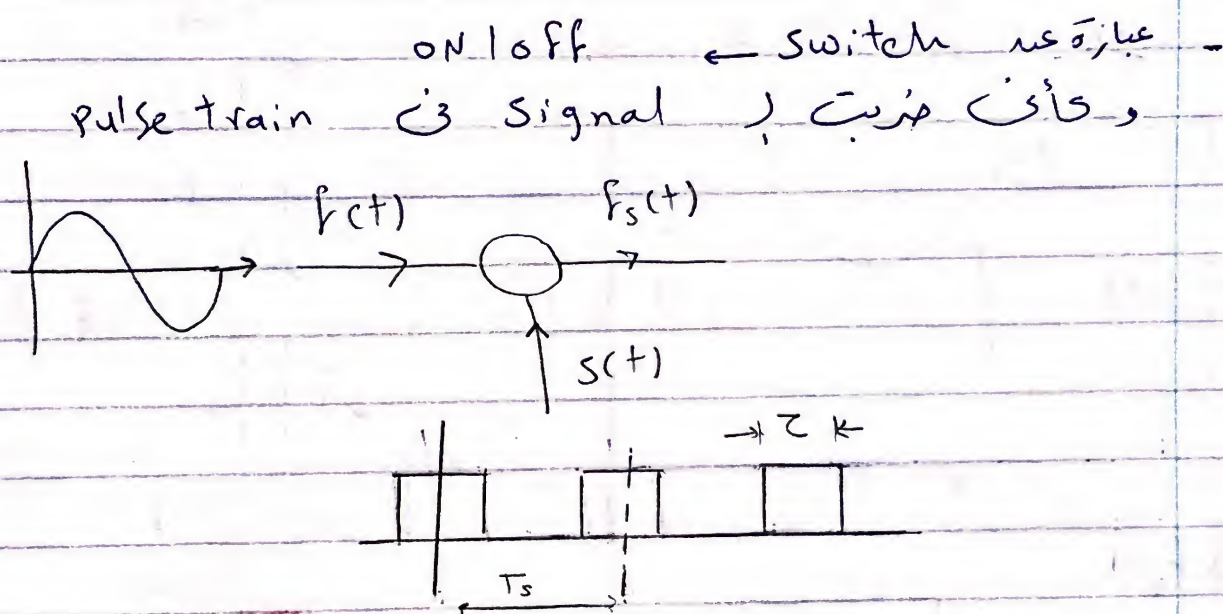 - عبارة عن switch ← on/off
وكأنى ضربت ال signal فى pulse train
f(t)
fs(t)
s(t)
τ
Ts